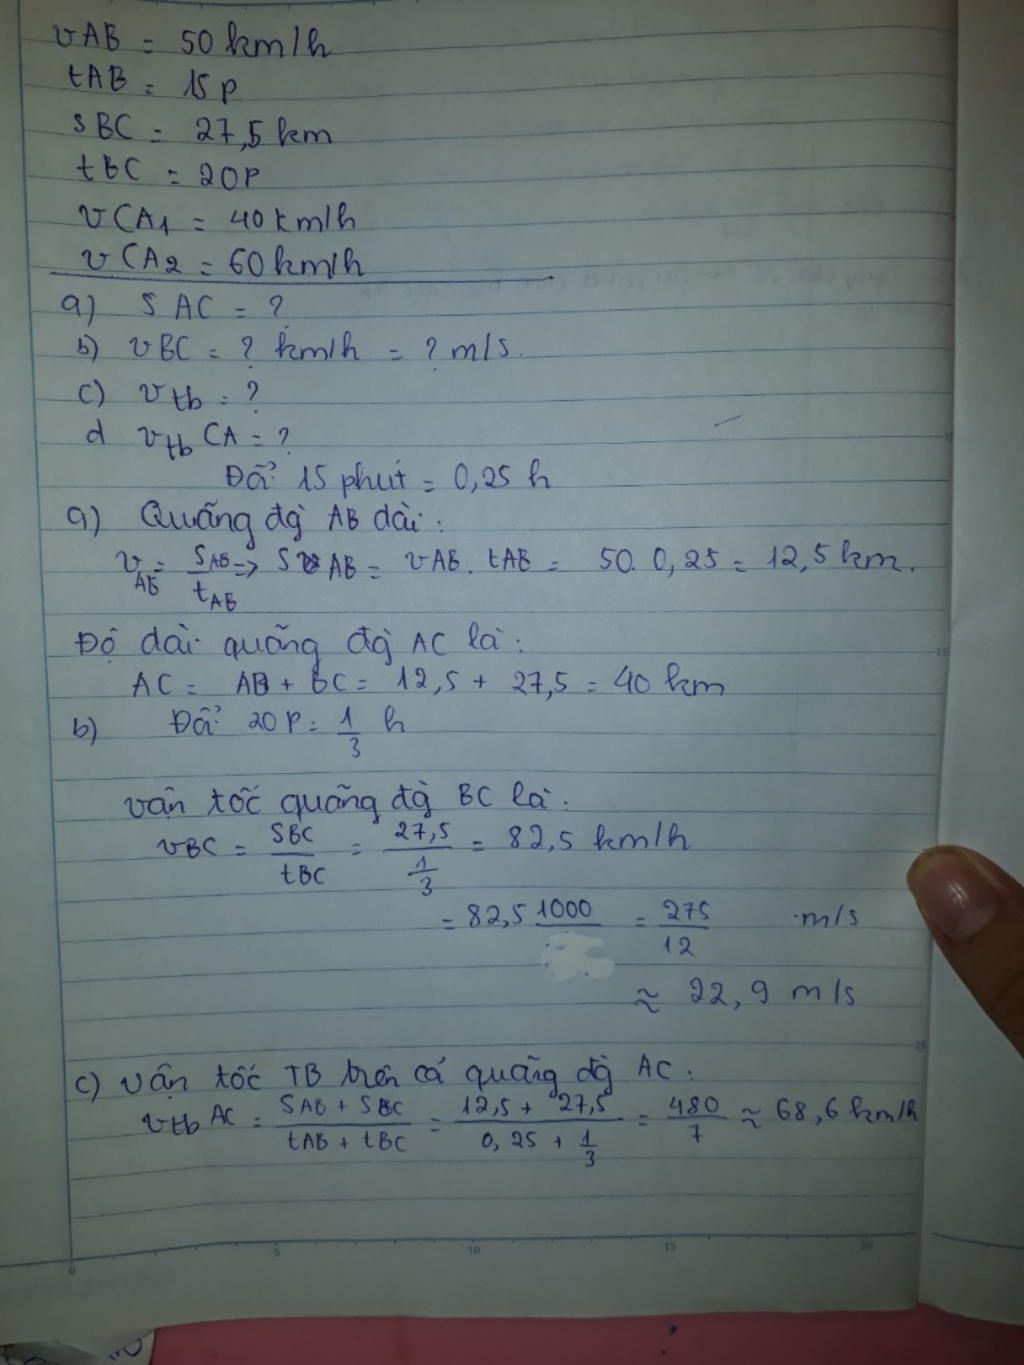 vAB = 50 km/h
tAB = 15p
SBC = 27,5 km
tBC = 20P
vCA1 = 40 km/h
vCA2 = 60 km/h
a) SAC = ?
b) vBC = ? km/h = ? m/s.
c) vtb = ?
d vtb CA = ?
Đổi 15 phút = 0,25 h
a) Quãng đg AB dài:
vAB = SAB/tAB => S AB = vAB. tAB = 50. 0,25 = 12,5 km.
Độ dài quãng đg AC là:
AC = AB + BC = 12,5 + 27,5 = 40 km
b) Đổi 20P = 1/3 h
vận tốc quãng đg BC là:
vBC = SBC/tBC = 27,5/(1/3) = 82,5 km/h
= 82,5 1000 = 275/12 m/s
≈ 22,9 m/s
c) vận tốc TB trên cả quãng đg AC:
vtb AC = (SAB + SBC)/(tAB + tBC) = (12,5 + 27,5)/(0,25 + 1/3) = 480/7 ≈ 68,6 km/h
5 10 15 20
0
15
25